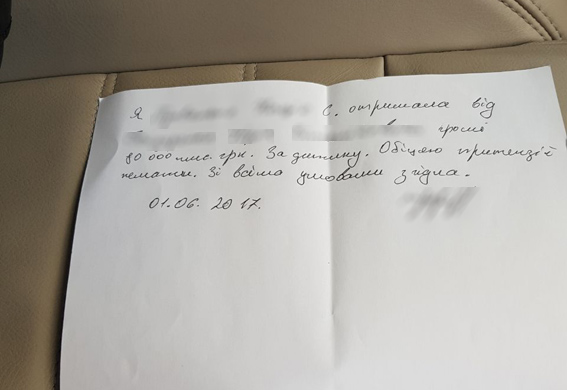 Я С. отримала від
гроші
80 000 тис. грн. За дитину. Обіцяю притензії
немати. Зі всіма умовами згідна.
01.06. 2017.